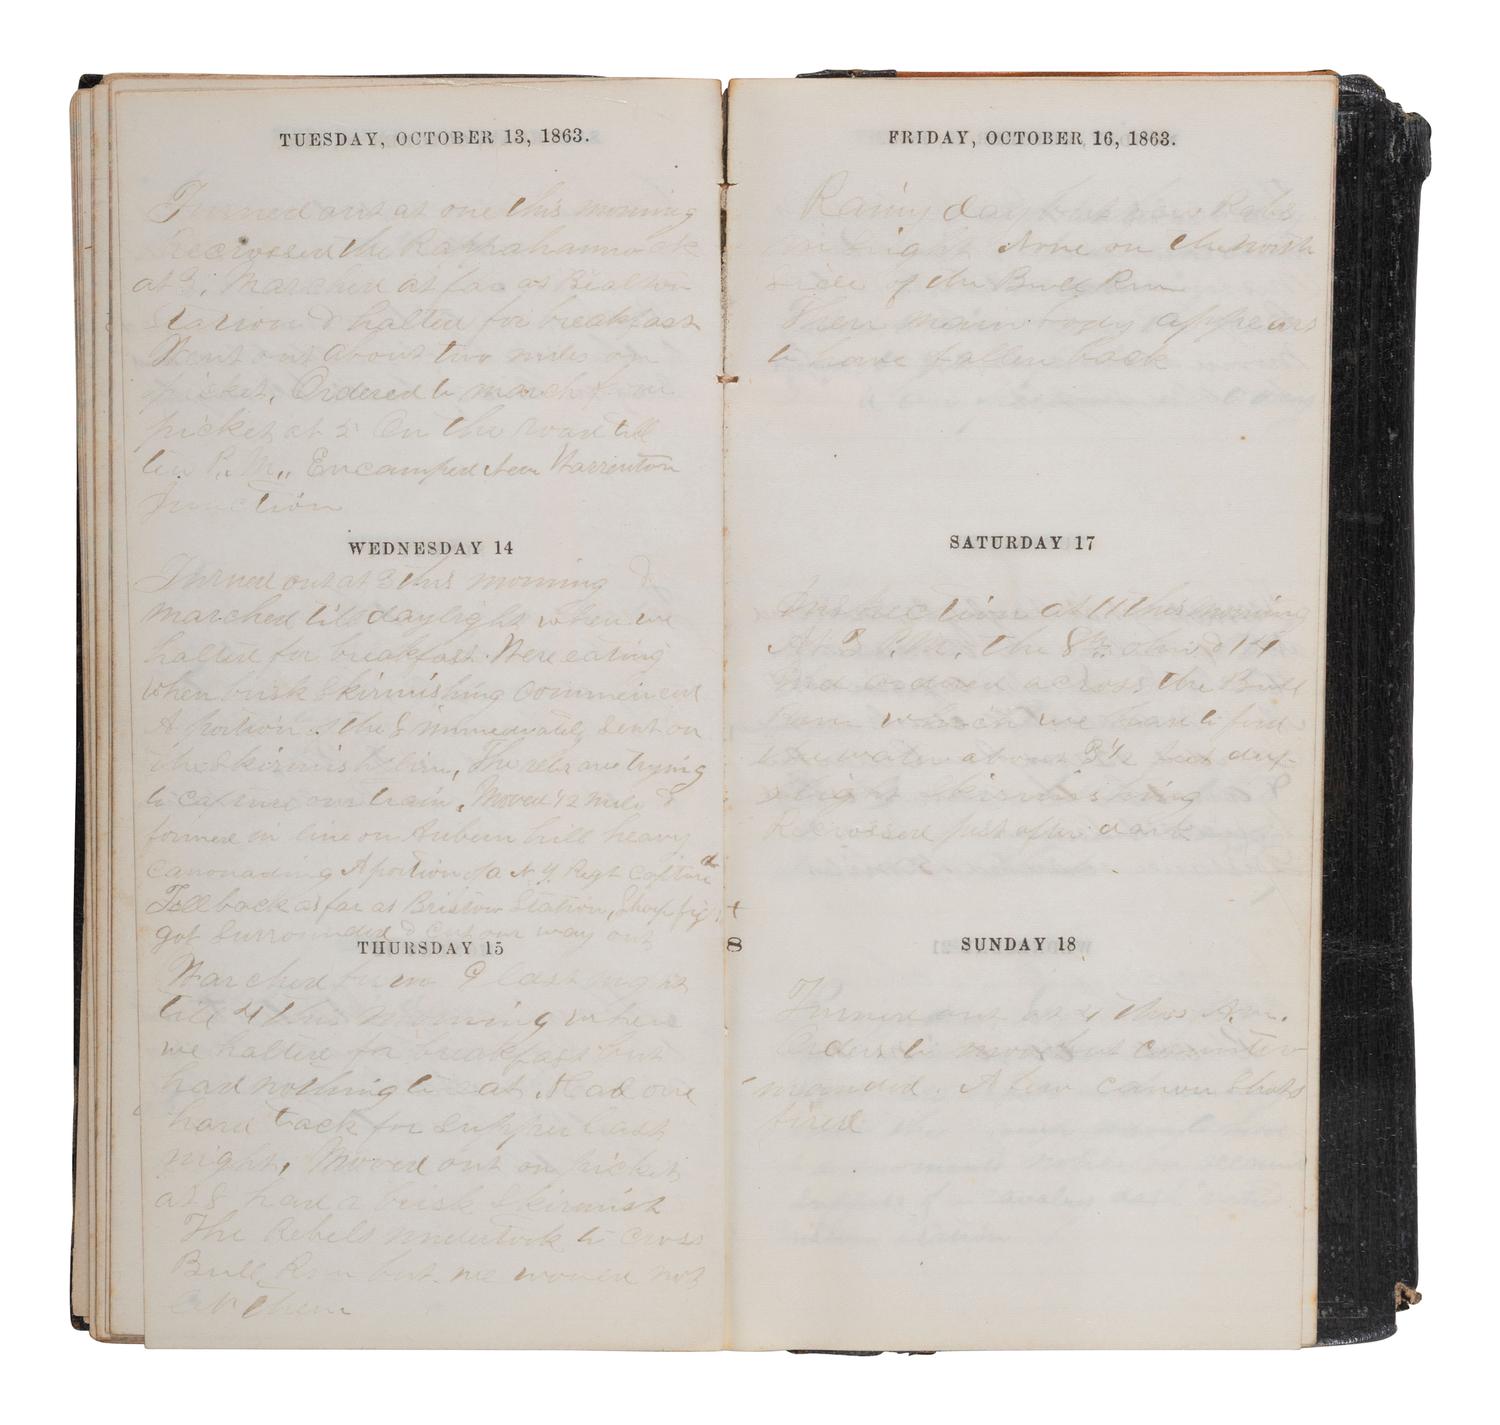 TUESDAY, OCTOBER 13, 1863.
Turned out at one this morning
Recrossed the Rappahannock
at 3. Marched as far as Bealton
Station & halted for breakfast
Went out about two miles on
picket. Ordered to march from
picket at 5 On the road till
ten P. M., Encamped near Warrenton
Junction
WEDNESDAY 14
Turned out at 3 this morning &
marched till daylight when we
halted for breakfast. Were eating
when brisk skirmishing commenced
A portion of the 8 immediately sent on
the skirmish line, The rebs are trying
to capture our train. Moved 1/2 mile &
formed in line on Auburn hill heavy
canonading A portion of a N Y Regt captured
Fell back as far as Bristow Station, Sharp fight
got surrounded & cut our way out
THURSDAY 15
Marched from 9 last night
till 4 this morning where
we halted for breakfast but
had nothing to eat. Had one
hard tack for supper last
night. Moved out on picket
at 8 had a brisk skirmish
The Rebels undertook to cross
Bull Run but we would not
let them
8
FRIDAY, OCTOBER 16, 1863.
Rainy day but few Rebs
in sight None on the north
side of the Bull Run
Their main body appears
to have fallen back
SATURDAY 17
Inspection at 11 this morning
At 3 P.M. the 8th Ohio & 14
Ind ordered across the Bull
Run which we had to ford
the water about 3 1/2 feet deep
slight skirmishing
Recrossed just after dark
SUNDAY 18
Turned out at 4 this A.M.
Orders to move but counter
manded. A few canon shots
fired